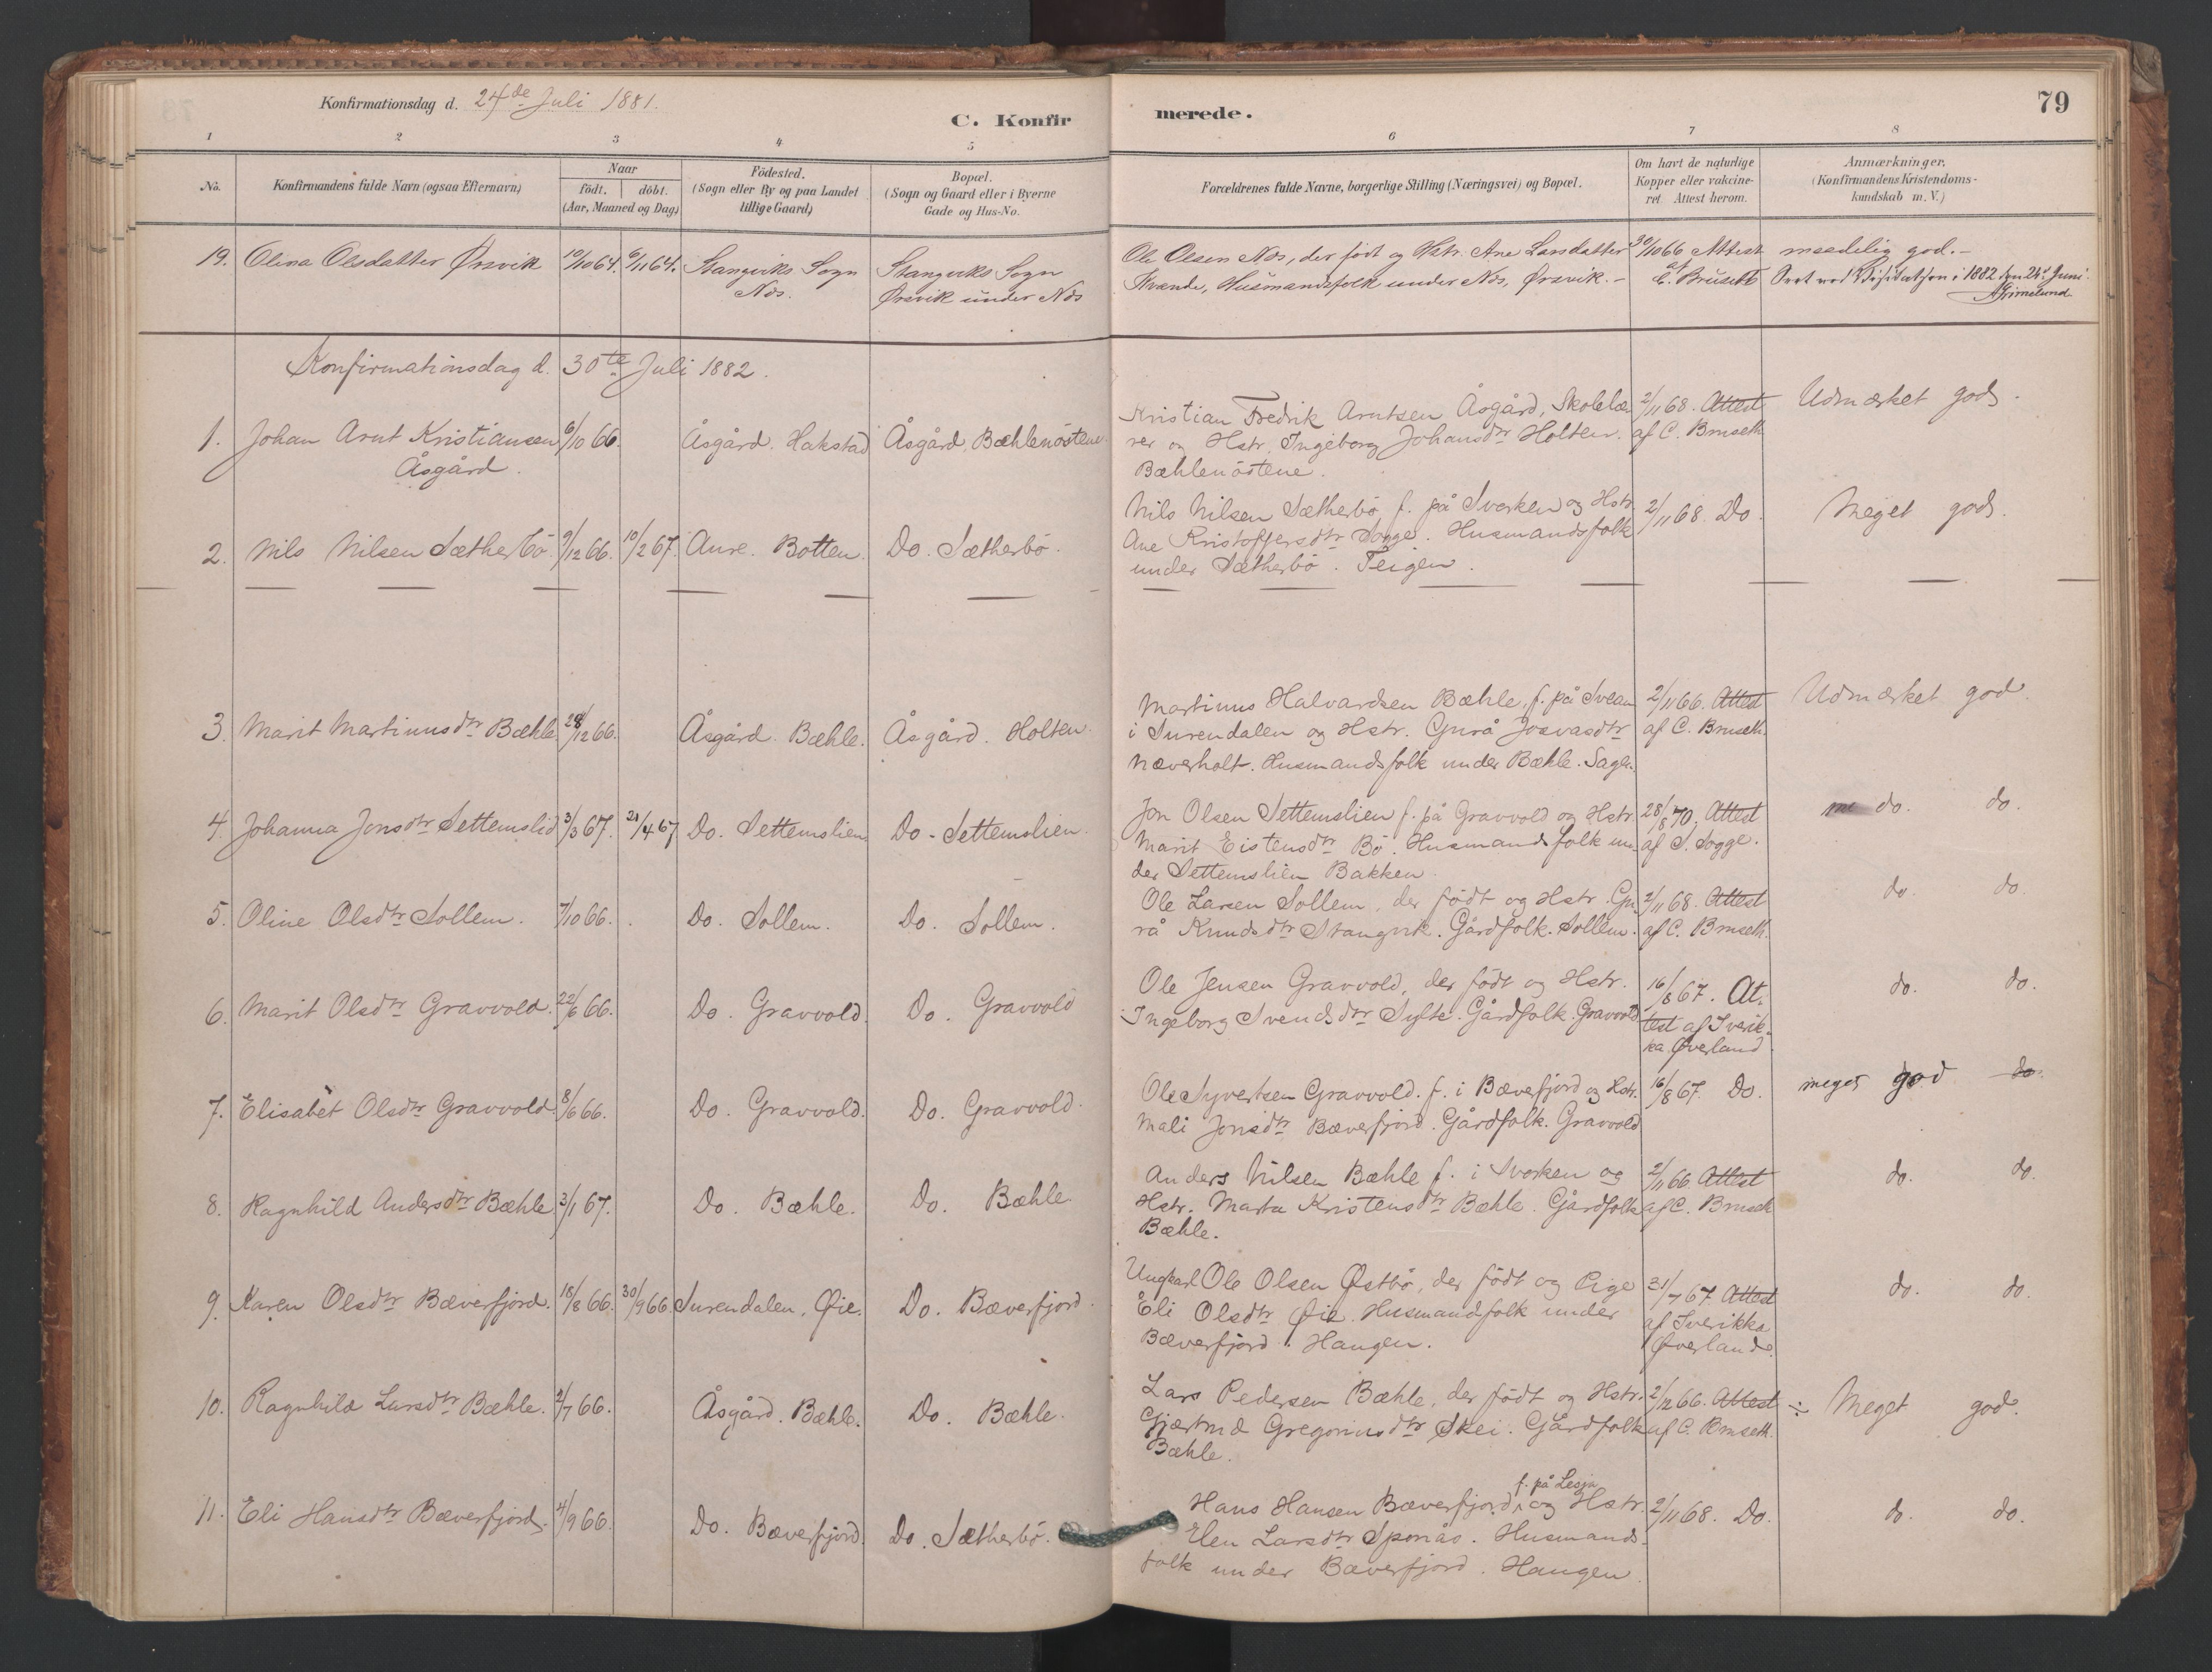 Konfirmationsdag d. 24de Juli 1881.
C. Konfirmerede.
79
1 2 3 4 5 6 7 8
No.
Konfirmandens fulde Navn (ogsaa Efternavn)
Naar
födt. döbt.
(Aar, Maaned og Dag)
Födested.
(Sogn eller By og paa Landet
tillige Gaard)
Bopæl.
(Sogn og Gaard eller i Byerne
Gade og Hus-No.
Forældrenes fulde Navne, borgerlige Stilling (Næringsvei) og Bopæl.
Om havt de naturlige
Kopper eller vakcine-
ret. Attest herom.
Anmærkninger.
(Konfirmandens Kristendoms-
kundskab m. V.)
19. Olina Olesdatter Ørsvik 19/10 64. 6/11 64. Stangviks Sogn
Nos.
Stangviks Sogn
Ørsvik under Nos
Ole Olsen Nos, der født og Hstr. Ane Larsdatter
Husmandsfolk under Nos, Ørsvik. -
30/10 66 Attest
af C. Bruseth
maadelig god. -
1882 den 24de Juni.
AGrimelund
Konfirmationsdag d. 30te Juli 1882.
1. Johan Arnt Kristiansen
Åsgård.
6/10 66. Åsgård. Hakstad Åsgård, Bæhlenöstene.
Kristian Fredrik Arntsen Åsgård, Skolelæ-
rer og Hstr. Ingeborg Johansdtr Holten.
Bæhlenöstene.
2/11 68. Attest
af C. Bruseth
Udmærket god.
2. Nils Nilsen Sætherbö. 9/12 66. 10/2 67. Aure. Botten. Do. Sætherbö.
Nils Nilsen Sætherbö f. på Svorken og Hstr.
Ane Kristoffersdtr Sogge. Husmandsfolk
under Sætherbö. Teigen.
2/11 68. Do.
Meget god.
3. Marit Martinusdtr Bæhle. 28/12 66. Åsgård. Bæhle. Åsgård. Holten.
Martinus Halvardsen Bæhle, f. på Svean
i Surendalen og Hstr. Gurå Josvasdtr
Næverholt. Husmandsfolk under Bæhle. Sagen.
2/11 66. Attest
af C. Bruseth.
Udmærket god.
4. Johanna Jonsdtr Settemslid 3/3 67. 21/4 67 Do. Settemslien Do - Settemslien.
Jon Olsen Settemslien f. på Gravvold og Hstr.
Marit Eistensdtr Bö. Husmandsfolk un-
der Settemslien Bakken.
28/8 70. Attest
af S. Sogge.
do. do.
5. Oline Olsdtr Sollem. 7/10 66. Do. Sollem. Do. Sollem.
Ole Larsen Sollem, der födt og Hstr. Gu-
rå Knudsdtr Stangvik. Gårdfolk. Sollem.
2/11 68. Attest
af C. Bruseth.
do. do.
6. Marit Olsdtr Gravvold. 22/6 66. Do. Gravvold. Do. Gravvold
Ole Jensen Gravvold, der födt og Hstr.
Ingeborg Svendsdtr Sylte. Gårdfolk. Gravvold
16/8 67. At-
test af Sverik-
ka Øverland.
do. do.
7. Elisabet Olsdtr Gravvold. 8/6 66. Do. Gravvold. Do. Gravvold.
Ole Syvertsen Gravvold. f. i Bæverfjord og Hstr.
Mali Jonsdtr Bæverfjord. Gårdfolk. Gravvold
16/8 67. Do.
meget god do.
8. Ragnhild Andersdtr Bæhle 3/1 67. Do. Bæhle. Do. Bæhle.
Anders Nilsen Bæhle f. i Svorken og
Hstr. Marta Kristensdtr Bæhle. Gårdfolk
Bæhle.
2/11 66 Attest
af C. Bruseth
do. do.
9. Karen Olsdtr Bæverfjord. 18/8 66. 30/9 66. Surendalen, Øie. Do. Bæverfjord.
Ungkarl Ole Olsen Østbö, der födt og Pige
Eli Olsdtr Øie. Husmandsfolk under
Bæverfjord. Haugen.
31/7 67. Attest
af Sverikka
Øverland.
do. do.
10. Ragnhild Larsdtr Bæhle. 2/7 66. Åsgård. Bæhle. Do. Bæhle.
Lars Pedersen Bæhle, der födt og Hstr.
Gjærtrud Gregoriusdtr Skei. Gårdfolk
Bæhle.
2/12 66. Attest
af C. Bruseth.
÷ Meget god.
11. Eli Hansdtr Bæverfjord. 4/9 66. Do. Bæverfjord. Do. Sætherbö.
f. på Lesja
Hans Hansen Bæverfjord, og Hstr.
Elen Larsdtr Sponås. Husmands-
folk under Bæverfjord. Haugen.
2/11 68. Do.
do. do.